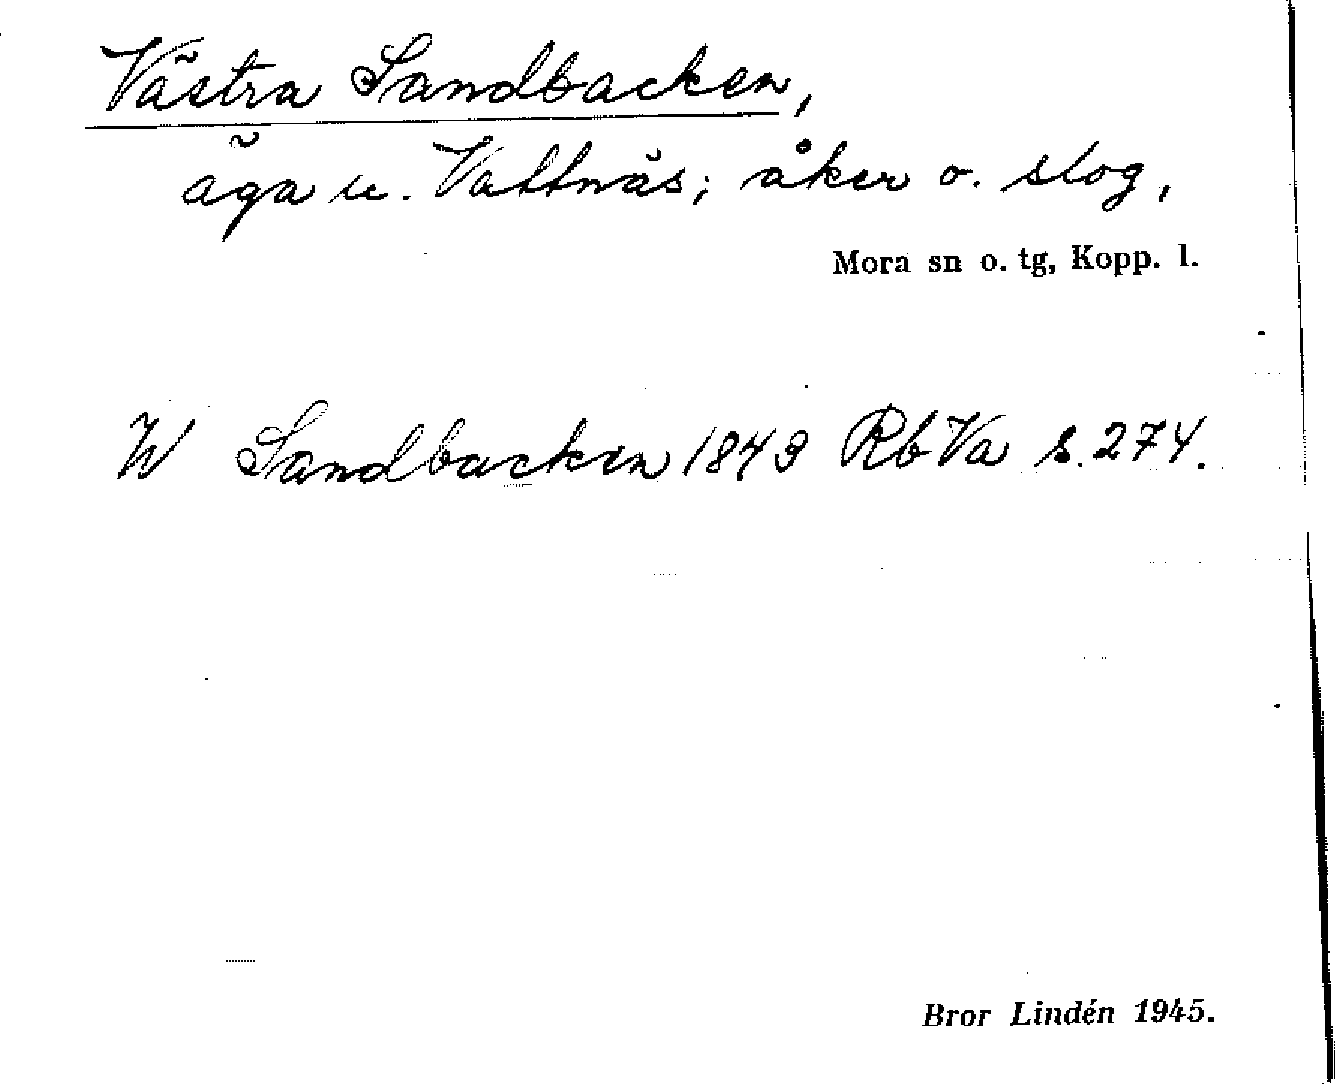 Västra Sandbacken,
äga u. Vattnäs; åker o. slog,
Mora sn o. tg, Kopp. l.
W Sandbacken 1843 Rb Va s. 274.
Bror Lindén 1945.